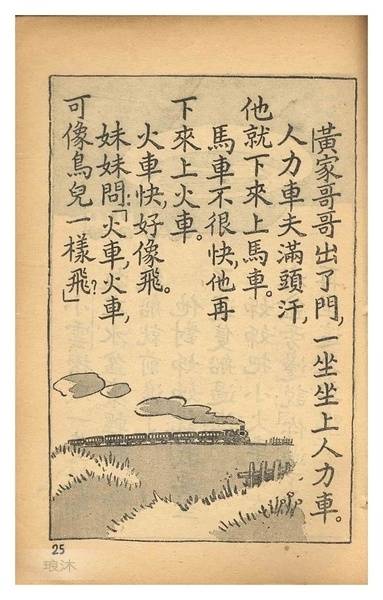 黃家哥哥出了門,一坐坐上人力車。
人力車夫滿頭汗,
他就下來上馬車。
馬車不很快,他再
下來上火車。
火車快,好像飛。
妹妹問:「火車,火車,
可像鳥兒一樣飛?」
25
琅沐